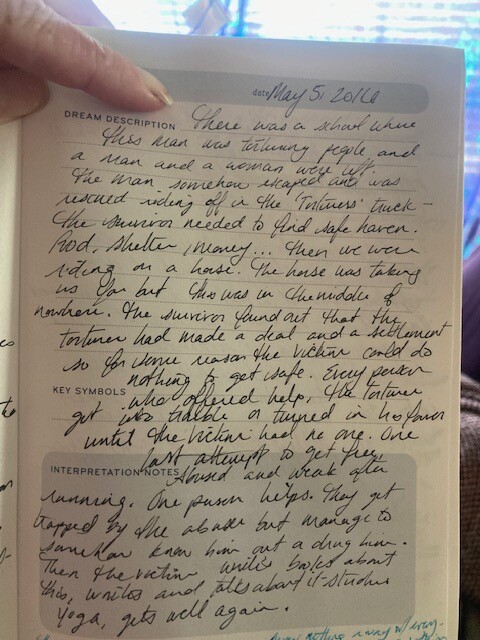 date May 5, 2016
DREAM DESCRIPTION There was a school where
this man was torturing people and
a man and a woman were left.
The man somehow escaped and was
rescued riding off in the "Torturers' truck -
the survivor needed to find safe haven.
food, shelter, money... Then we were
riding on a horse. The horse was taking
us far but this was in the middle of
nowhere. The survivor found out that the
torturer had made a deal and a settlement
so for some reason the victim could do
nothing to get safe. Every person
KEY SYMBOLS who offered help, the torturer
got into trouble or turned in his favor
until the victim had no one. One
last attempt to get free,
INTERPRETATION NOTES Abused and weak after
running. One person helps. They get
trapped by the abuser but manage to
somehow knock him out & drug him.
Then the victim writes books about
this, writes and talks about it - studies
yoga, gets well again.